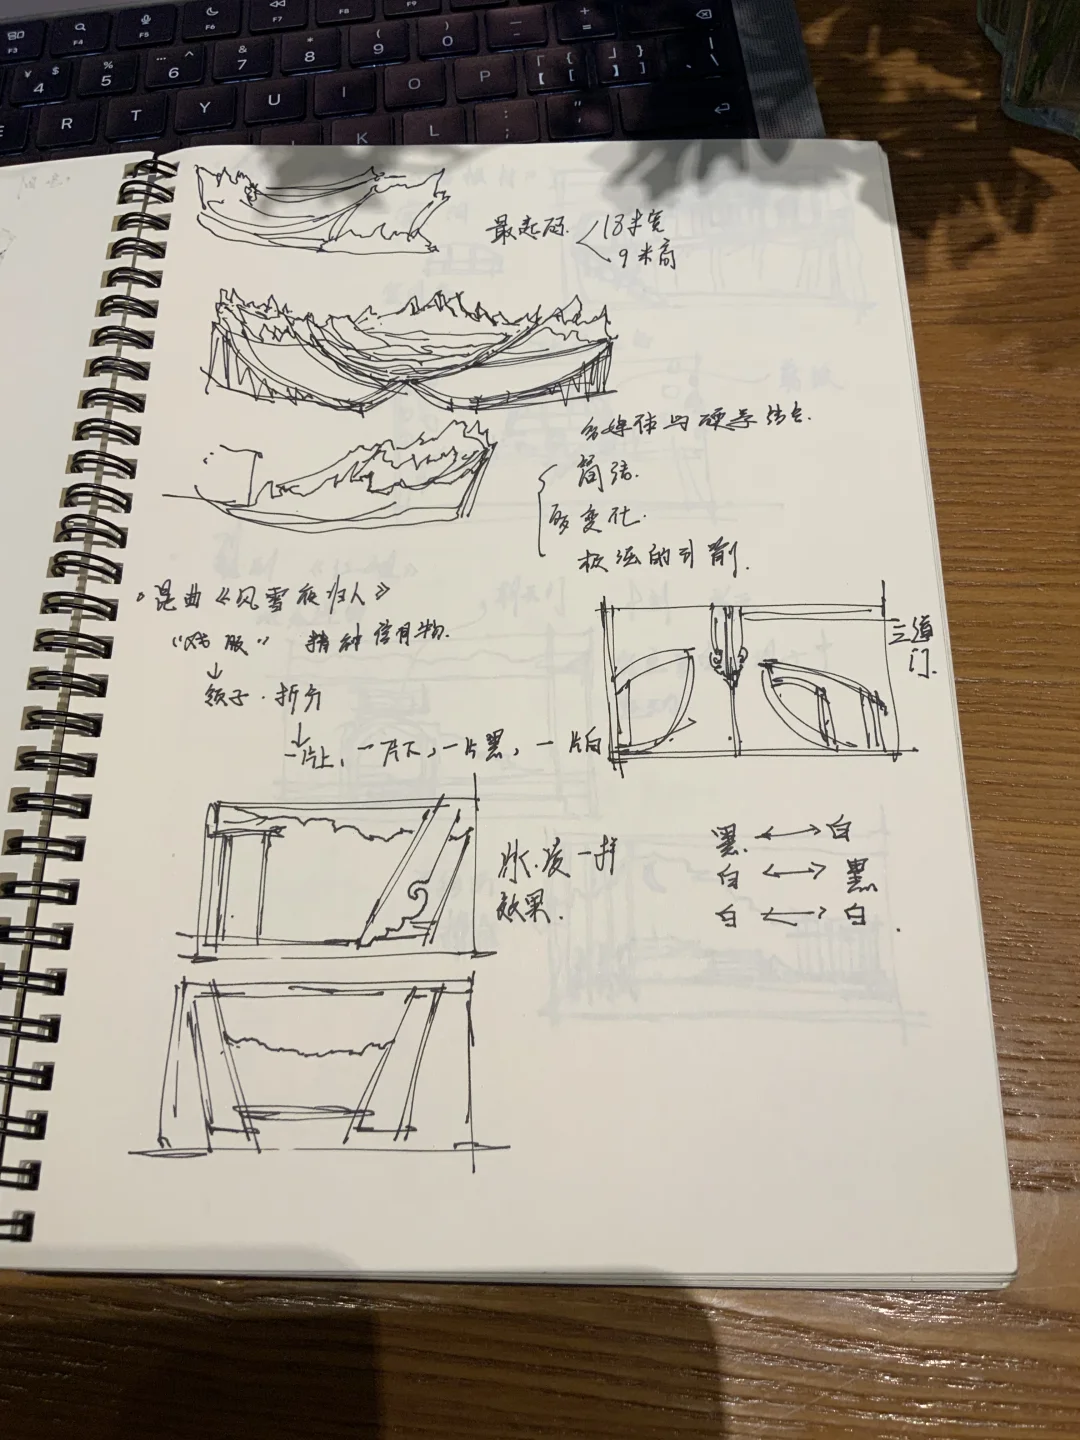 F3 F4 F5 F6 F7 F8 F9
¥ $ 4 % 5 … ^ 6 & 7 * 8 ( 9 ) 0 — - + =
R T Y U I O P
K L : ;
最起码 18米宽
9米高
多媒体与硬景结合.
简练.
多变化.
极强的引剧.
昆曲《风雪夜归人》
"戏服" 精神信物.
↓
领子·折分
↓
一片上,一片下,一片黑,一片白
三道
门.
冰凌一样
效果.
黑 ↔ 白
白 ↔ 黑
白 ↔ 白.